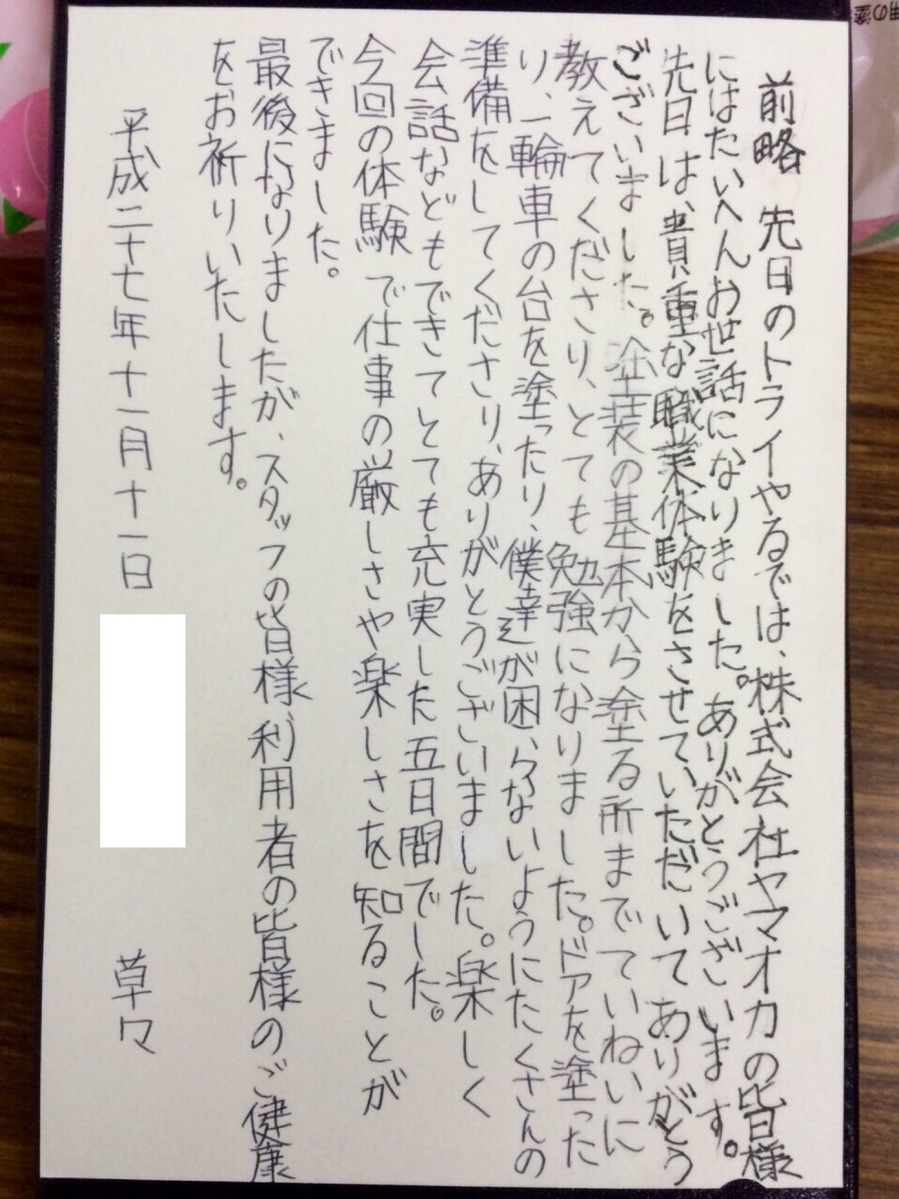 前略 先日のトライやるでは、株式会社ヤマオカの皆様
にはたいへんお世話になりました。ありがとうございます。
先日は、貴重な職業体験をさせていただいてありがとう
ございました。塗装の基本から塗る所までていねいに
教えてくださり、とても勉強になりました。ドアを塗った
り、一輪車の台を塗ったり、僕達が困らないようにたくさんの
準備をしてくださり、ありがとうございました。楽しく
会話などもできてとても充実した五日間でした。
今回の体験で仕事の厳しさや楽しさを知ることが
できました。
最後になりましたが、スタッフの皆様利用者の皆様のご健康
をお祈りいたします。
平成二十七年十一月十一日
草々